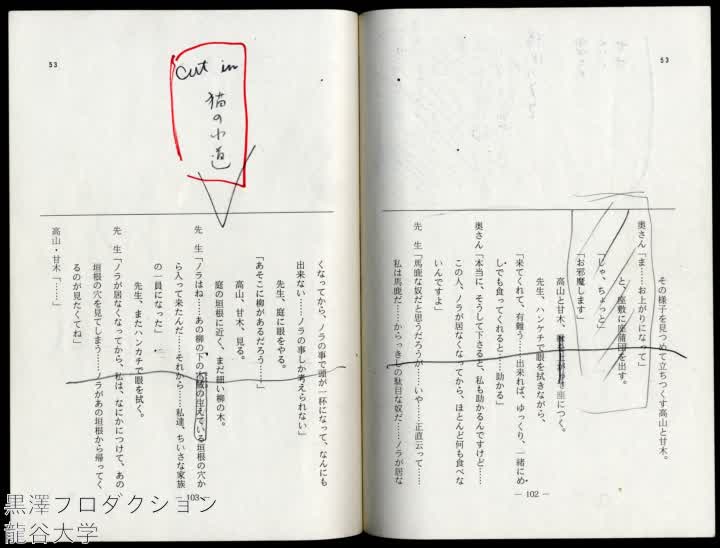 53
その様子を見つめて立ちつくす高山と甘木。
奥さん「ま……お上がりになって」
と、座敷に座蒲団を出す。
「じゃ、ちょっと」
「お邪魔します」
高山と甘木、座につく。
先生、ハンケチで眼を拭きながら、
「来てくれて、有難う……出来れば、ゆっくり、一緒にめ
しでも食ってくれると……助かる」
奥さん「本当に、そうして下さると、私も助かるんですけど……
この人、ノラが居なくなってから、ほとんど何も食べな
いんですよ」
先　生「馬鹿な奴だと思うだろうが……いや……正直云って……
私は馬鹿だ……からっきしの駄目な奴だ……ノラが居な
― 102 ―
53
cut in
猫の小道
くなってから、ノラの事で頭が一杯になって、なんにも
出来ない……ノラの事しか考えられない」
先生、庭に眼をやる。
「あそこに柳があるだろう……」
高山、甘木、見る。
庭の垣根に近く、まだ細い柳の木。
先　生「ノラはね……あの柳の下の木賊の生えている垣根の穴か
ら入って来たんだ……それから……私達、ちいさな家族
の一員になった」
先生、またハンカチで眼を拭く。
先　生「ノラが居なくなってから、私は、なにかにつけて、あの
垣根の穴を見てしまう……ノラがあの垣根から帰ってく
るのが見たくてね」
高山・甘木「……」
― 103 ―
黒澤プロダクション
龍谷大学